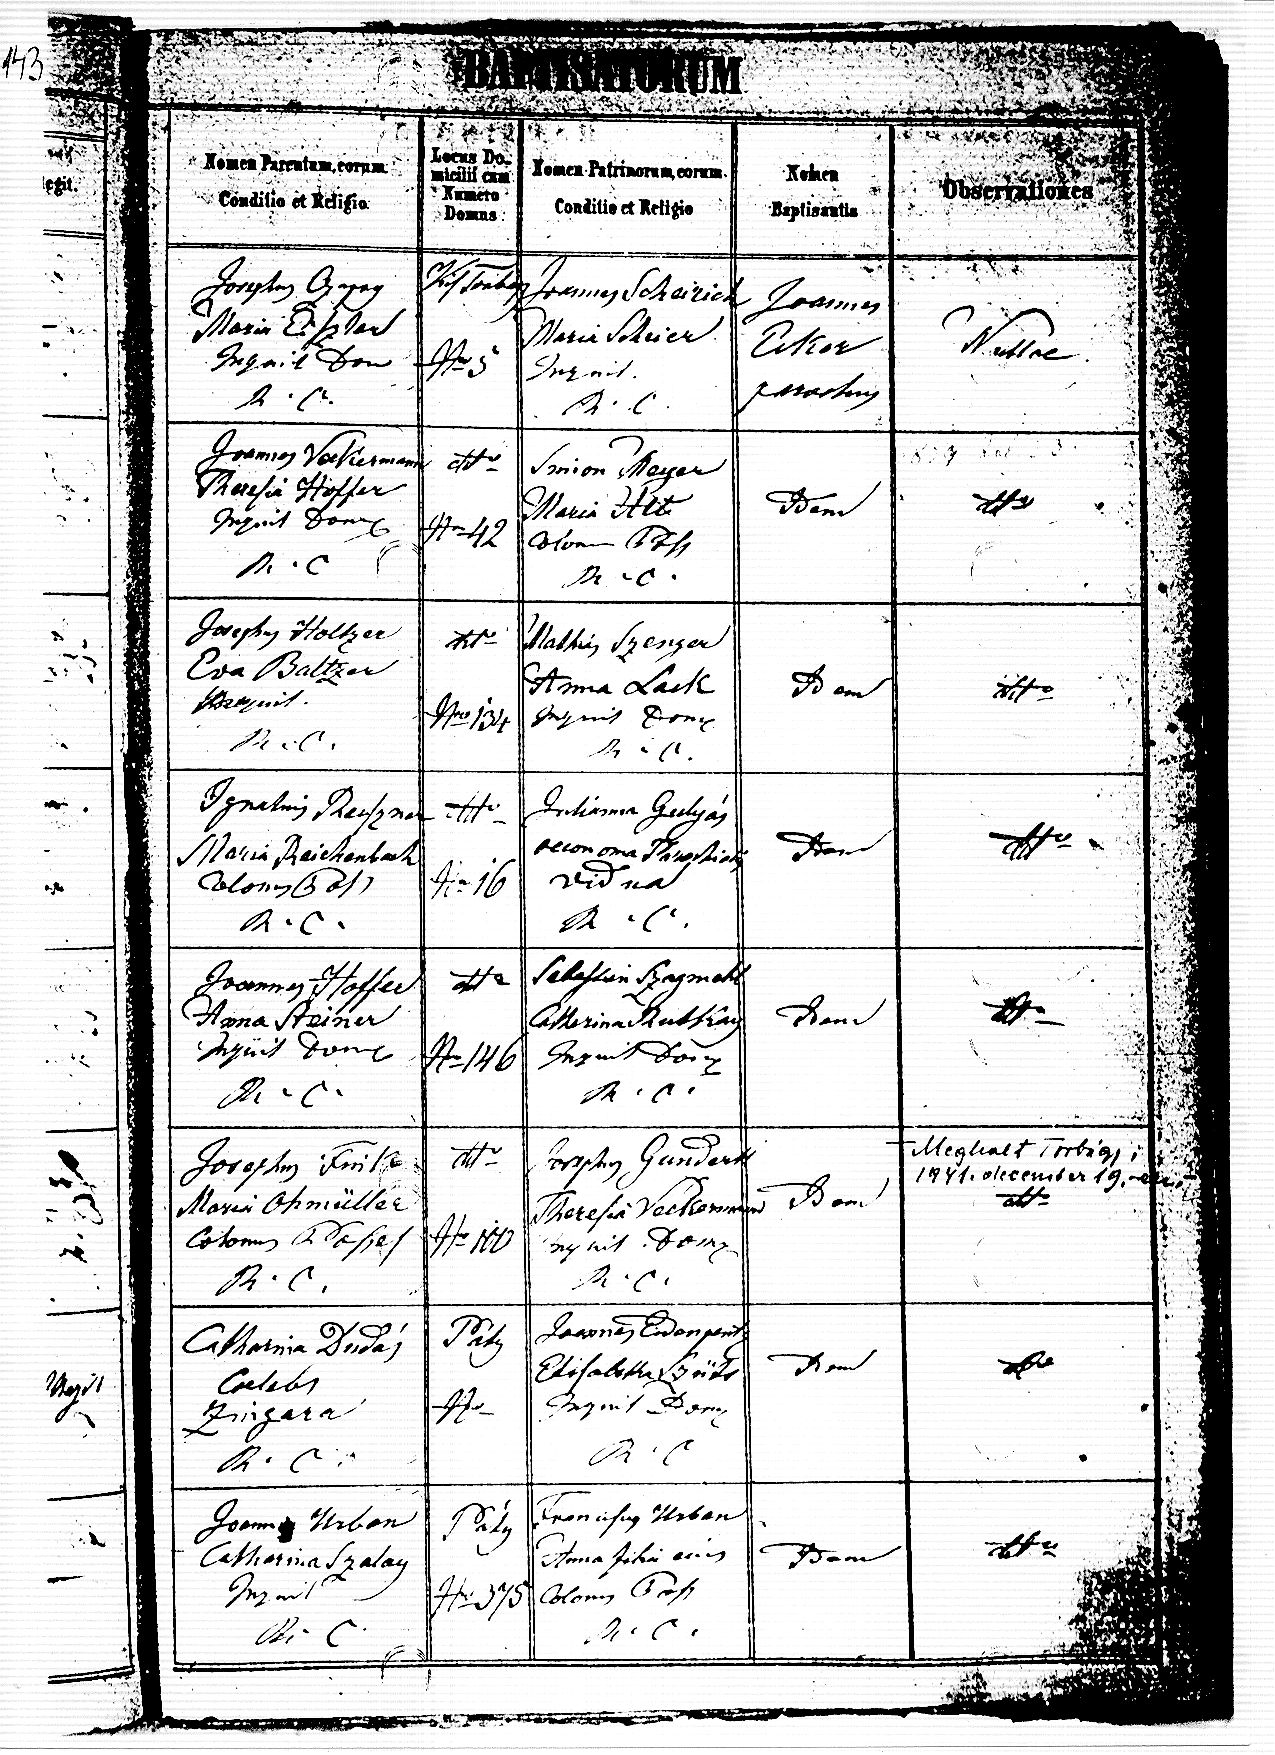 143
BAPTISATORUM
Nomen Parentum, eorum
Conditio et Religio
Locus Do-
micilii cum
Numero
Domus
Nomen Patrinorum, eorum
Conditio et Religio
Nomen
Baptisantis
Observationes
egit.
Josephus
Maria
Inquil Dom
R. C.
Nro 5
Joannes Scheirich
Maria Scheier
Inquil.
R. C.
Joannes
Eker
parochus
Nullae
Joannes Veckermann
Theresia Hoffer
Inquil Domx
R. C
dtto
Nro 42
Simon Mayer
Maria Alt
Colonus Poss
R. C.
Idem
dtto
Josephus Holtzer
Eva Baltzer
Inquil.
R. C.
dtto
Nro 134
Mathias Szenger
Anna Lack
Inquil Domx
R. C.
Idem
dtto
Ignatius
Maria Reichenbach
Colonus Poss
R. C.
dtto
Nro 16
Julianna Gulyás
oeconoma
vidua
R. C.
Idem
dtto
Joannes Hoffer
Anna Steiner
Inquil Domx
R. C.
dtto
Nro 146
Sebastian
Catherina
Inquil Domx
R. C.
Idem
dtto
Josephus Fink
Maria Ohmüller
Colonus Posses
R. C.
dtto
Nro 100
Josephus Gundert
Theresia Veckermann
Inquil Domx
R. C.
Idem
Meghalt Torbágy,
1941. december 19.-én.
dtto
Catharina Dudás
Caelebs
Zingara
R. C.
Páty
Nro
Joannes
Elisabetha Szüts
Inquil Domx
R. C
Idem
dtto
Joannes Urban
Catharina Szalay
Inquil
R. C
Páty
Nro 375
Franciscus Urban
Anna filia eius
Colonus Poss
R. C.
Idem
dtto